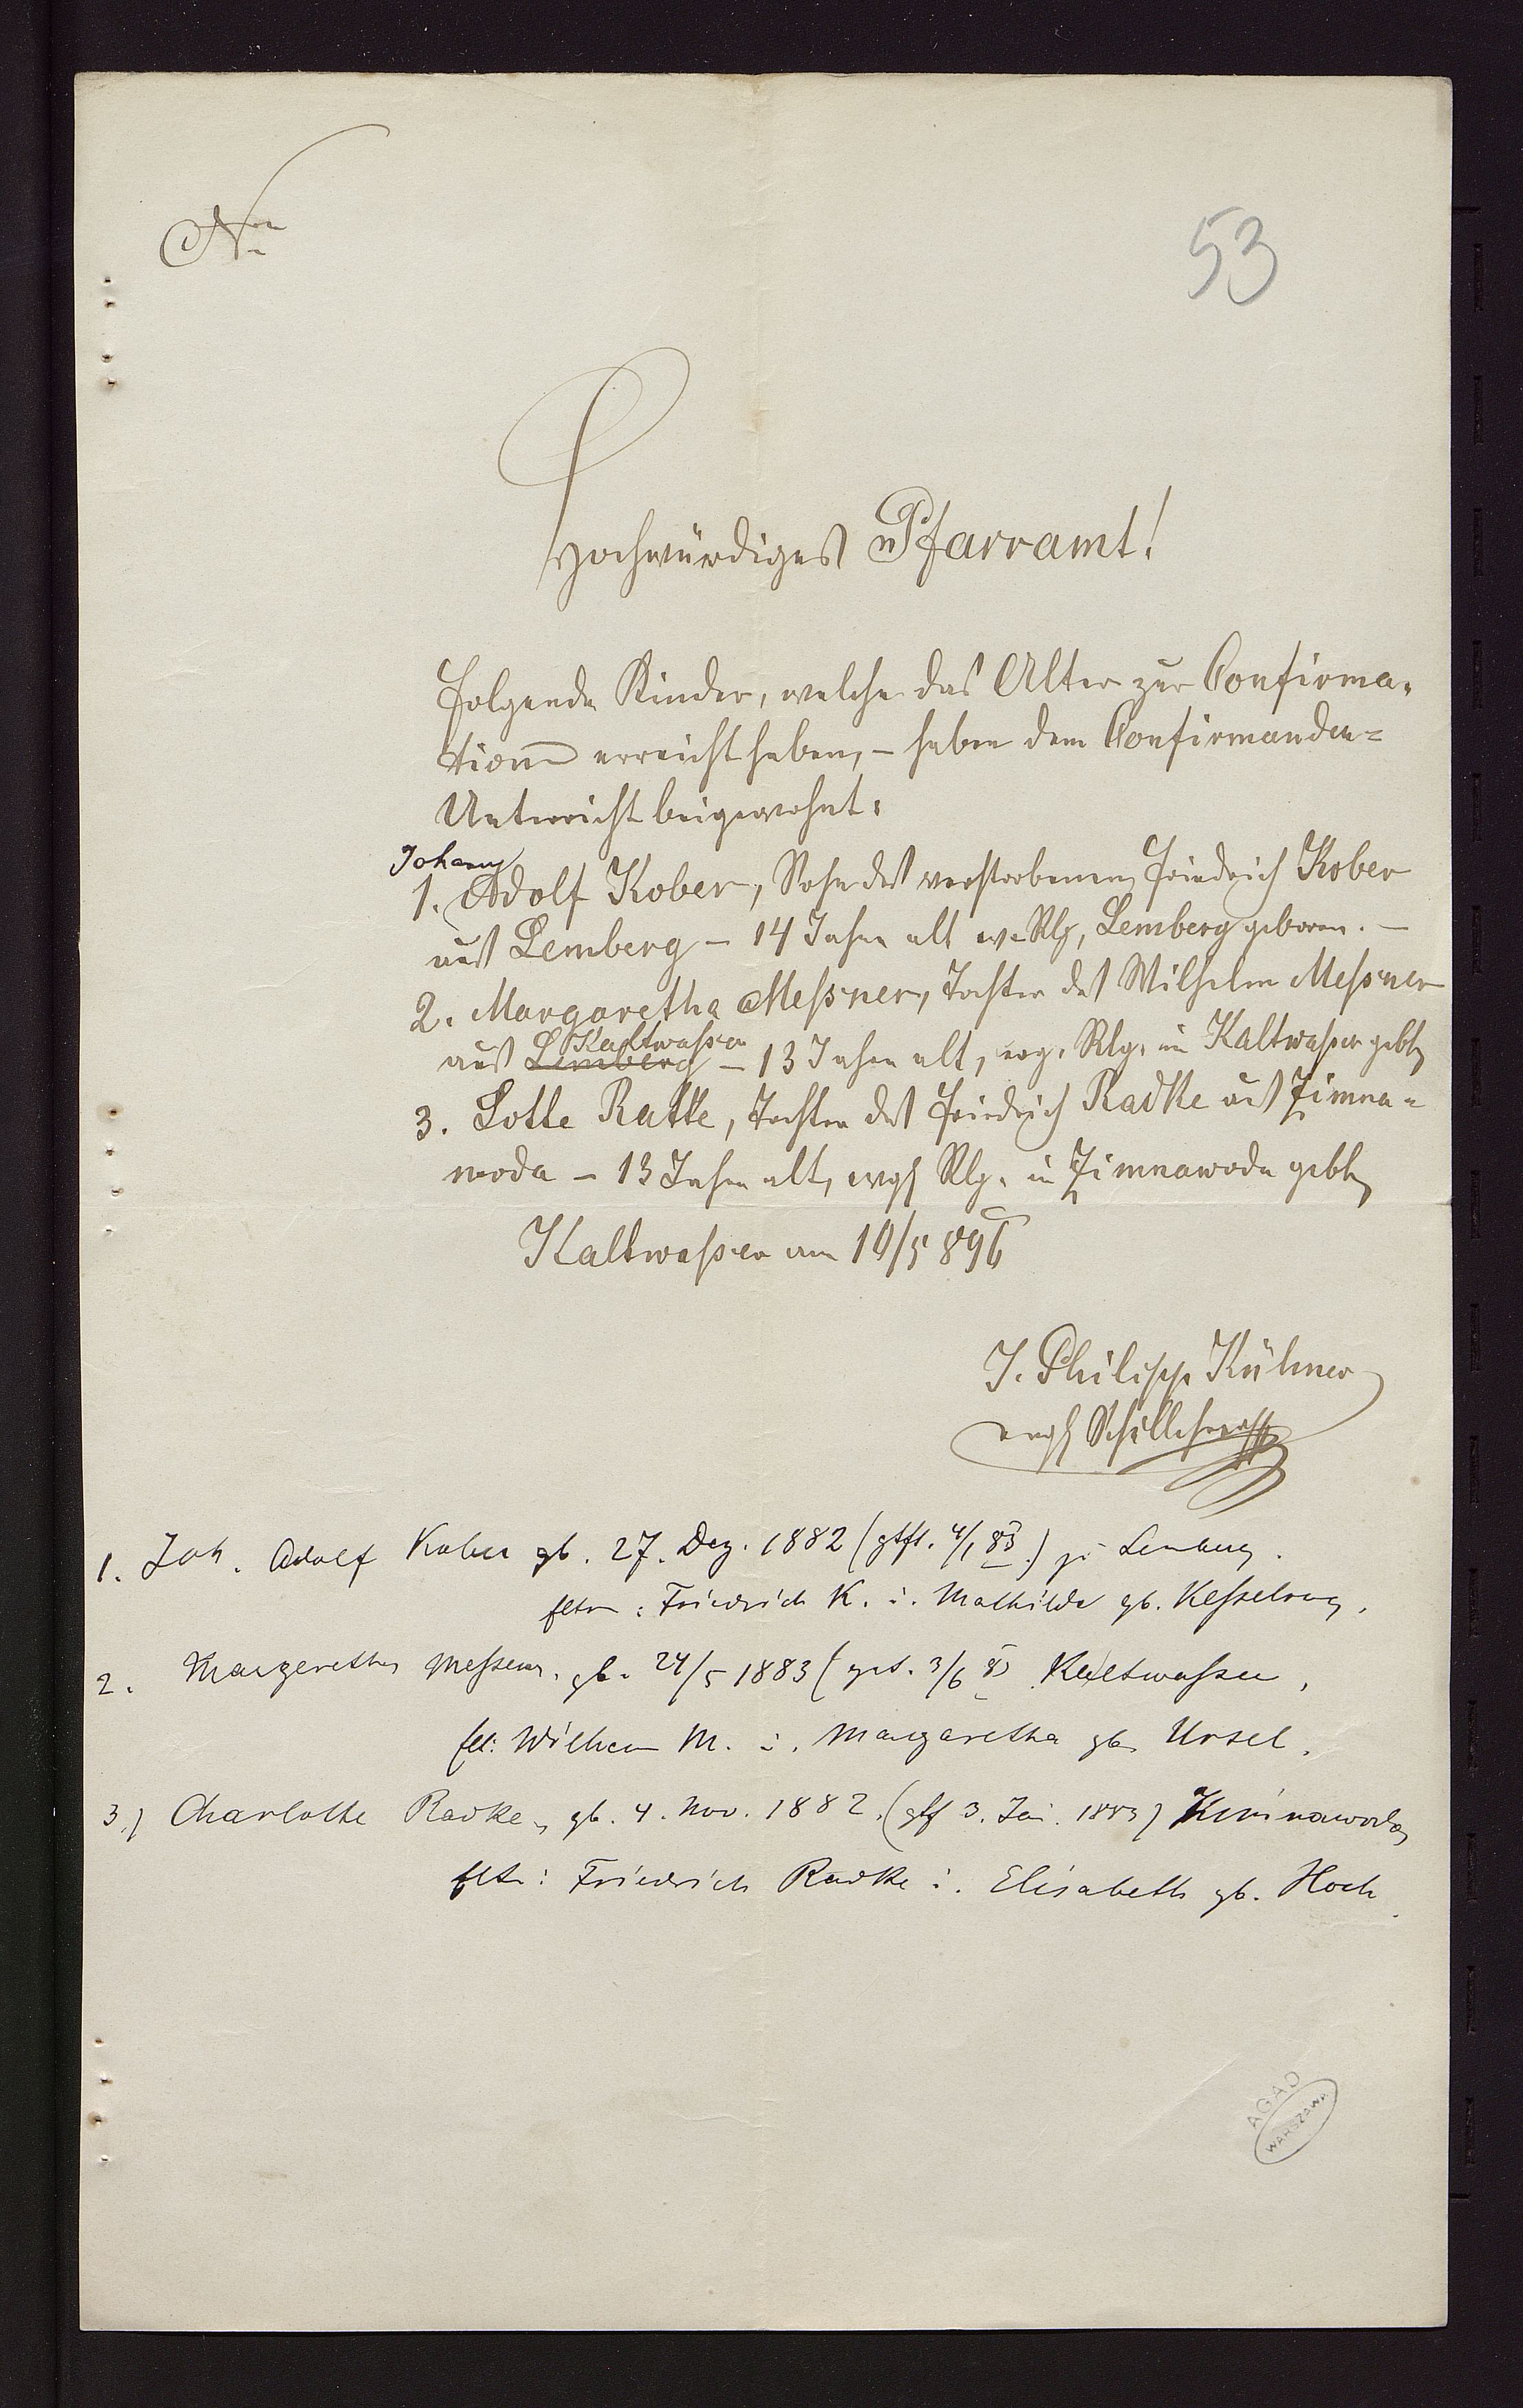 No
53
Hochwürdiges Pfarramt!
Folgende Kinder, welche das Alter zur Confirma-
tion erreicht haben, – haben dem Confirmanden-
Unterricht beigewohnt:
Johann
1. Adolf Kober, Sohn des verstorbenen Friedrich Kober
aus Lemberg – 14 Jahre alt ev. Rlg, Lemberg geboren. –
2. Margaretha Meßner, Tochter des Wilhelm Meßner
Kaltwasser
aus Lemberg – 13 Jahre alt, evg. Rlg. in Kaltwasser geb
3. Lotte Ratke, Tochter des Friedrich Radke aus Zimna-
woda – 13 Jahre alt, evgl Rlg. in Zimnawoda geb
Kaltwasser am 10/5 896
J. Philipp Kühner
evgl Schullehrer
1. Joh. Adolf Kober gb. 27. Dez. 1882 (gtft. 4/1 83.) zu Lemberg.
Eltern: Friedrich K. u. Mathilde gb. Kesselring.
2. Margaretha Messner. gb. 24/5 1883 (get. 3/6 83 Kaltwasser,
Elt: Wilhelm M. u. Margaretha gb. Ursel.
3.) Charlotte Radke, gb. 4. Nov. 1882. (gtf 3. Jan. 1883) Zimnawoda
Elt: Friedrich Radke u. Elisabeth gb. Hoch.
AGAD
WARSZAWA